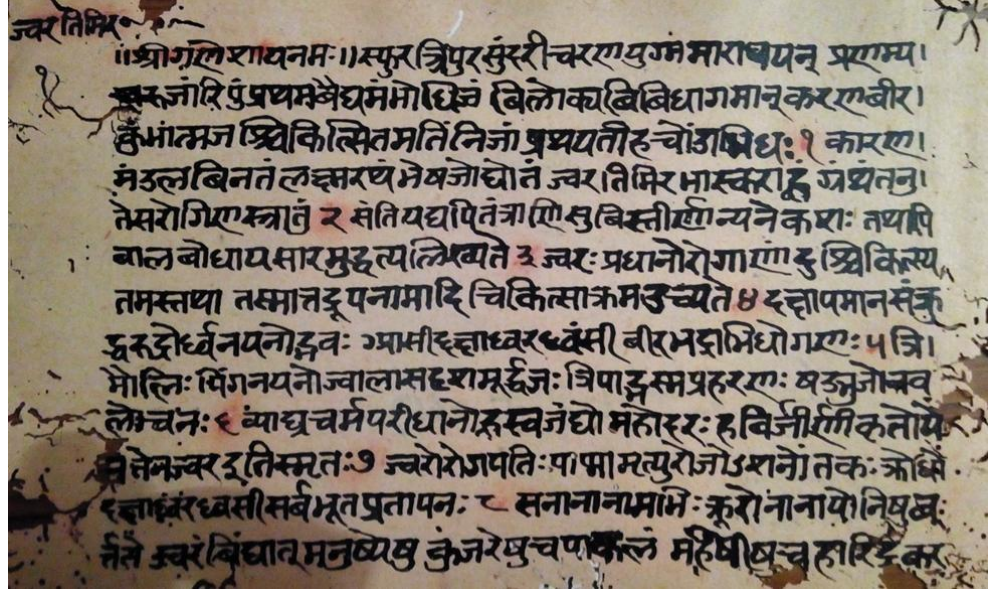 ज्वरतिमिर
॥श्रीगणेशायनमः॥स्फुरत्त्रिपुरसुंदरीचरणयुग्ममाराधयन् प्रणम्य।
रुजांरिपुंप्रथमबैद्यमंभोधिजं बिलोक्यबिबिधागमान्करणबीर।
कुंभांत्मजश्चिकित्सितमतिंनिजां प्रथयतीहचांउाभिधः१ कारण।
मंडलबिनतं लक्ष्मरथंभेषजोद्योतं ज्वरतिमिरभास्कराह्वं ग्रंथंतनु।
तेसरोगिणस्त्रातुं २ संतियद्यपितंत्राणिसुबिस्तीर्णान्यनेकशः तथापि
बालबोधायसारमुद्धृत्यलिख्यते ३ ज्वरः प्रधानोरोगाणांदुश्चिकित्स्य
तमस्तथा तस्मात्तद्रूपनामादि चिकित्साक्रमउच्यते ४ दक्षापमानसंक्रु
द्धरुद्रोर्ध्वनयनोद्भवः आसीद्दक्षाध्वरध्वंसी बीरभद्राभिधोगणः ५ त्रि।
मौलिः पिंगनयनोज्वालासदृशमूर्द्धजः त्रिपाद्भस्मप्रहरणः षड्भुजोनव
लोचनः ६ ब्याघ्रचर्मपरीधानोह्रस्वजंघो महोदरः हबिर्जीर्णीकृतोये
नतेनज्वरइतिस्मृतः ७ ज्वरोरोगपतिः पाप्मामृत्युरोजोऽशनोंतकः क्रोधो
दक्षाध्वरध्वंसीसर्बभूतप्रतापनः ८ सनानानामाभिः क्रूरोनानायोनिषु
ज्वरंबिंद्यात् मनुष्येषु कुंजरेषुचपाकलं महिषीषुचहारिद्रं